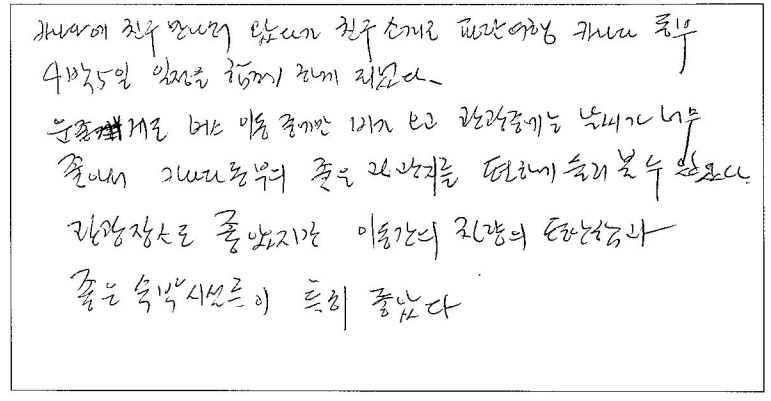 캐나다에 친구 만나러 왔다가 친구 소개로 파란여행 캐나다 동부
4박5일 일정을 함께 하게 되었다.
운좋게도 버스 이동 중에만 비가 오고 관광중에는 날씨가 너무
좋아서 캐나다동부의 좋은 관광지를 편하게 둘러 볼 수 있었다.
관광장소도 좋았지만 이동간의 차량의 편안함과
좋은 숙박시설등이 특히 좋았다